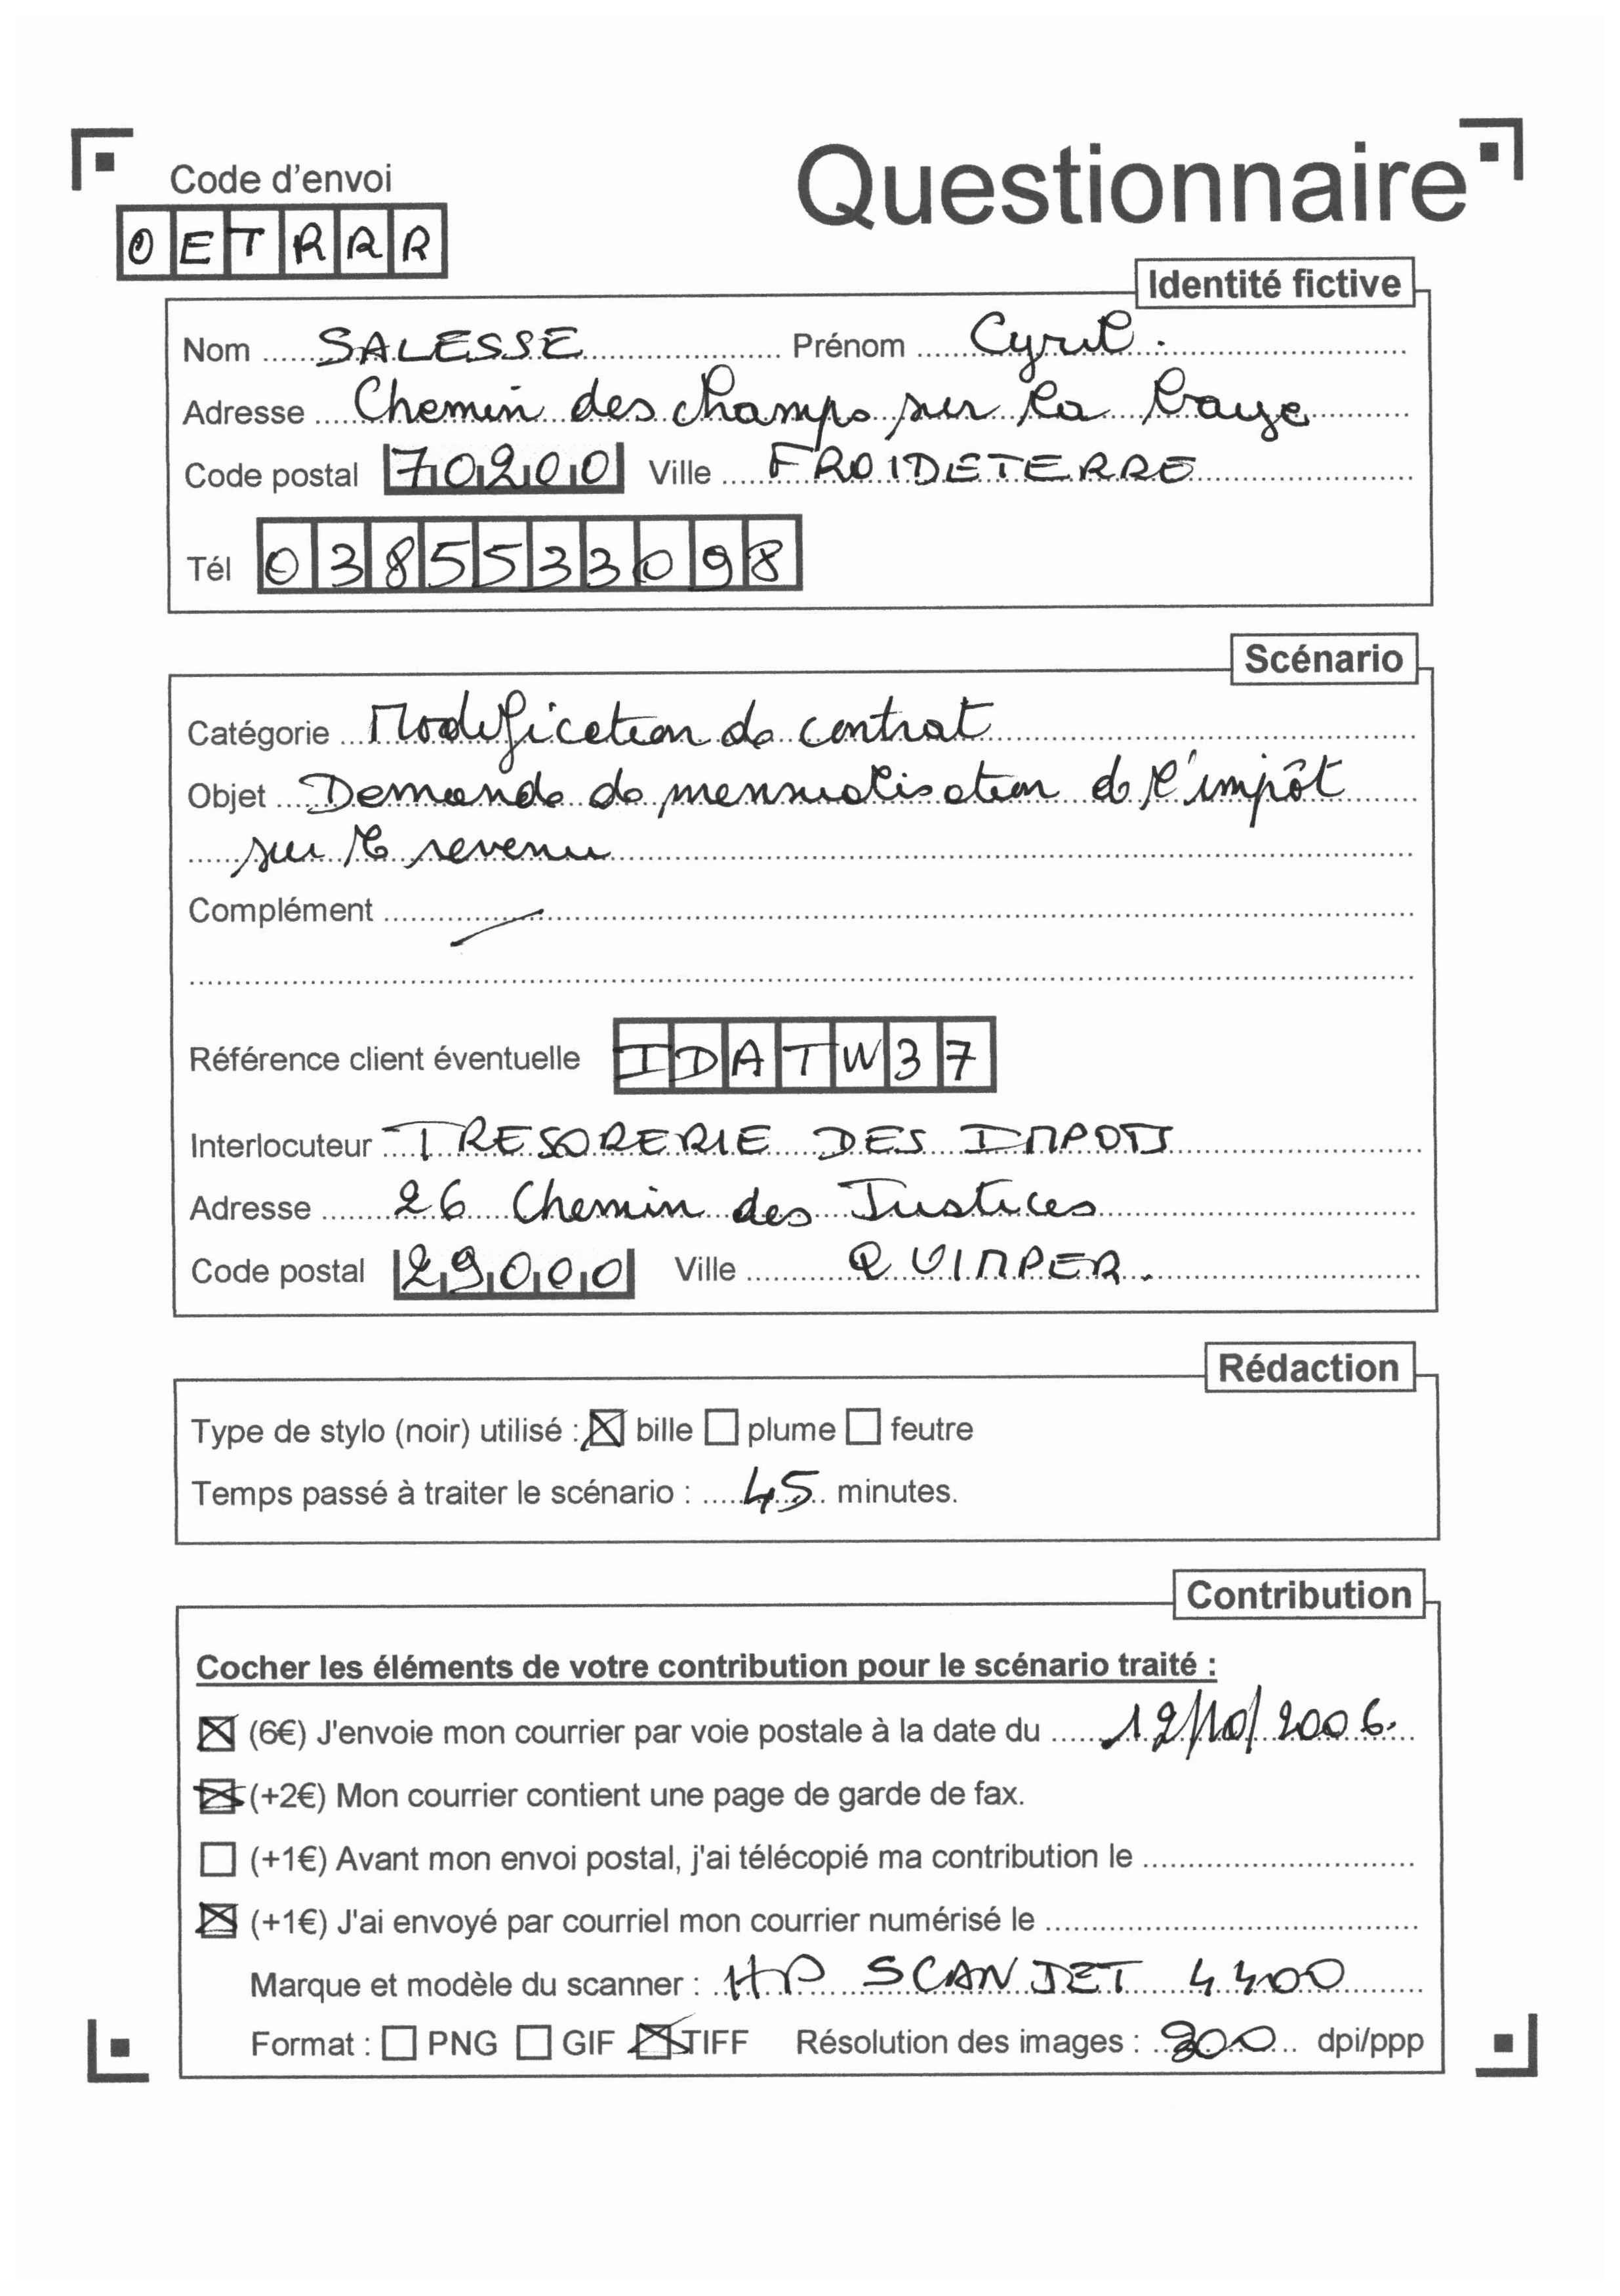 Code d'envoi
Questionnaire
OETRRR
Identité fictive
Nom SALESSE Prénom Cyril.
Adresse Chemin des champs sur la Caye
Code postal 70200 Ville FROIDETERRE
Tél 0385533098
Scénario
Catégorie Modification de contrat
Objet Demande de mensualisation de l'impôt
sur le revenu
Complément
Référence client éventuelle IDATW37
Interlocuteur TRESORERIE DES IMPOTS
Adresse 26 Chemin des Justices
Code postal 29000 Ville QUIMPER.
Rédaction
Type de stylo (noir) utilisé : ☒ bille ☐ plume ☐ feutre
Temps passé à traiter le scénario : 45 minutes.
Contribution
Cocher les éléments de votre contribution pour le scénario traité :
☒ (6€) J'envoie mon courrier par voie postale à la date du 12/10/2006.
☒ (+2€) Mon courrier contient une page de garde de fax.
☐ (+1€) Avant mon envoi postal, j'ai télécopié ma contribution le
☒ (+1€) J'ai envoyé par courriel mon courrier numérisé le
Marque et modèle du scanner : HP SCANJET 4400
Format : ☐ PNG ☐ GIF ☒ TIFF Résolution des images : 300 dpi/ppp